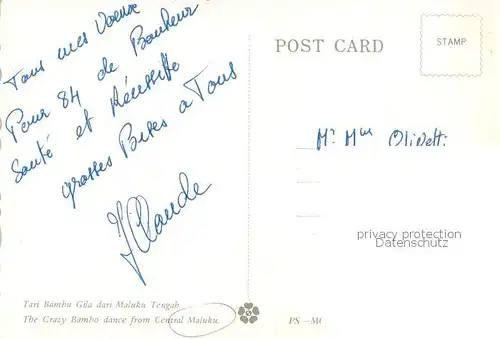 Tous mes Voeux
Pour 84 de Bonheur
Santé et Réussite
grosses Bises a Tous
J Claude
POST CARD
STAMP
Mr Mme Olivetti
privacy protection
Datenschutz
Tari Bambu Gila dari Maluku Tengah
The Crazy Bambo dance from Central Maluku.
PS –M